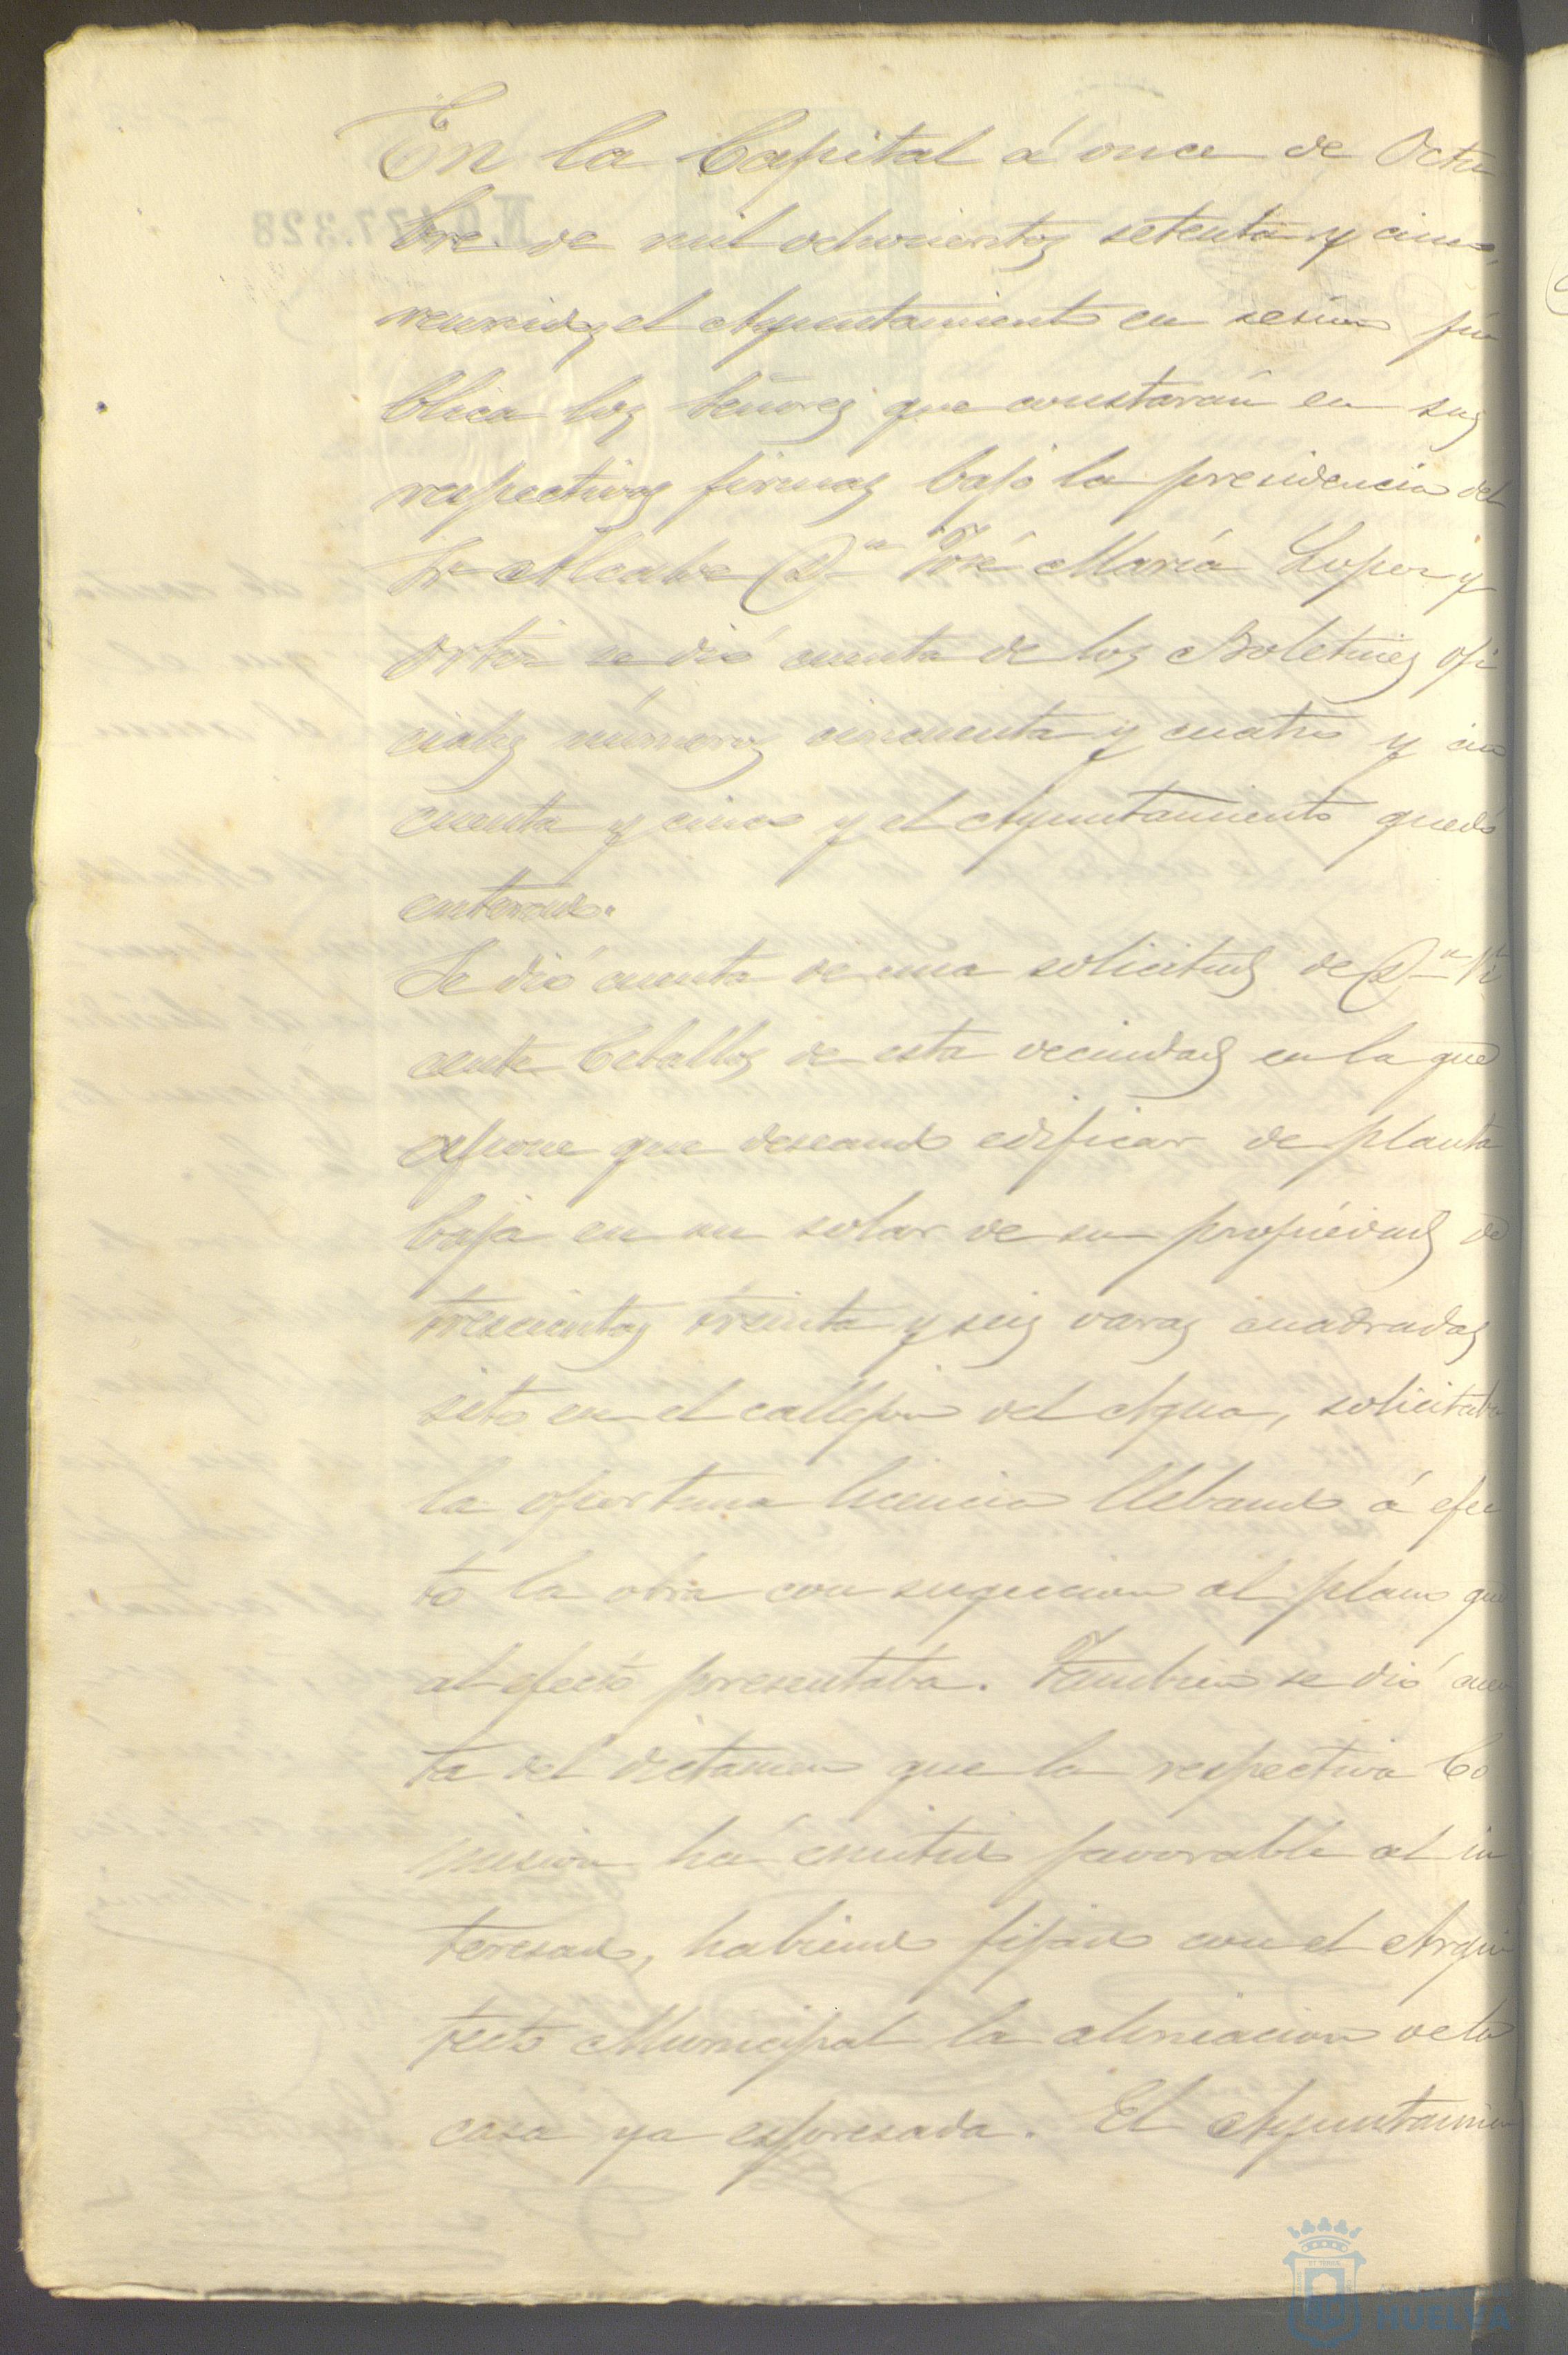 En la Capital á once de Octu
bre de mil ochocientos setenta y cinco,
reunidos el Ayuntamiento en sesion pú
blica los Señores que constarán en sus
respectivas firmas bajo la presidencia del
Sr Alcalde Dn José María Lopez y
Ortiz se dió cuenta de los Boletines ofi
ciales números cincuenta y cuatro y cin
cuenta y cinco y el Ayuntamiento quedó
enterado.
Se dió cuenta de una solicitud de Dn Vi
cente Ceballos de esta vecindad en la que
espone que deseando edificar de planta
baja en un solar de su propiedad de
trescientas treinta y seis varas cuadradas
sito en el callejon del Agua, solicitaba
la oportuna licencia llebando á efec
to la obra con sugecion al plano que
al efecto presentaba. Tambien se dió cuen
ta del dictamen que la respectiva Co
mision há emitido favorable al in
teresado, habiendo fijado con el Arqui
tecto Municipal la alineacion de la
casa ya espresada. El Ayuntamien
HUELVA